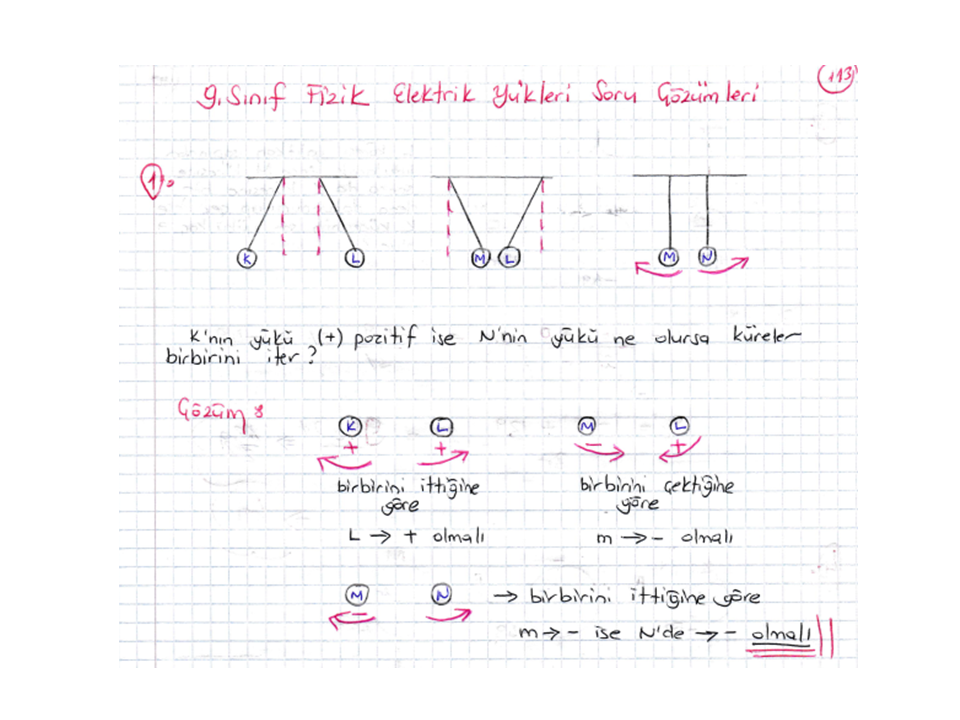 113
9. Sınıf Fizik Elektrik Yükleri Soru Çözümleri
1.
K L M L M N
K'nın yükü (+) pozitif ise N'nin yükü ne olursa küreler
birbirini iter ?
Çözüm :
K L M L
+ + - +
birbirini ittiğine birbirini çektiğine
göre göre
L → + olmalı m → - olmalı
M N → birbirini ittiğine göre
-
m → - ise N'de → - olmalı